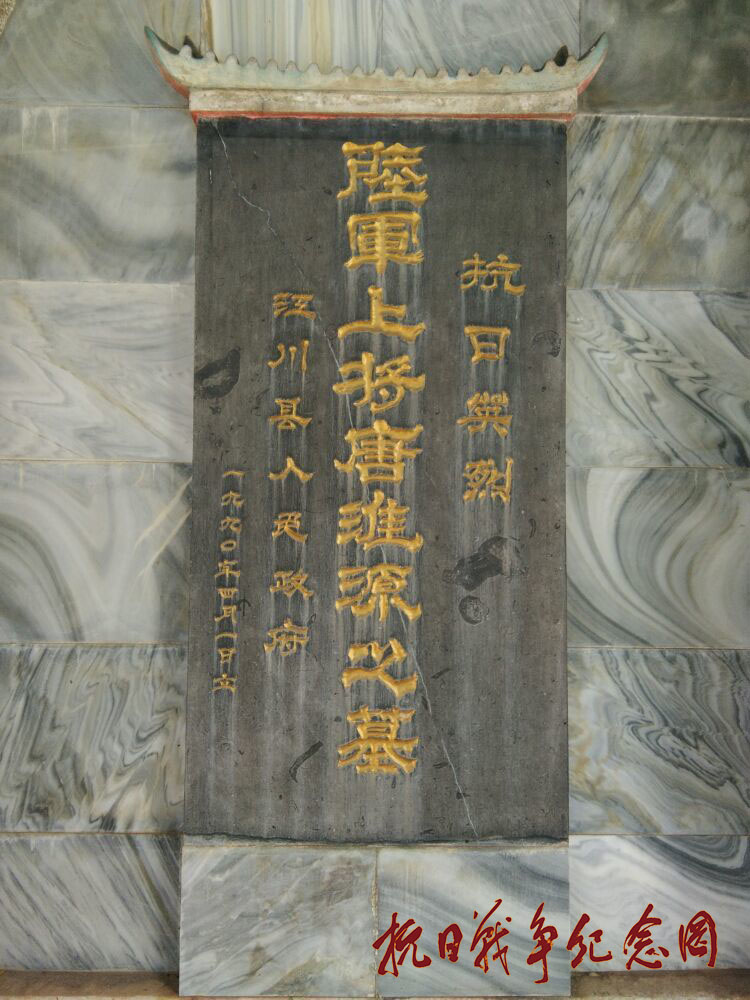 抗日英烈
陸軍上将唐淮源之墓
江川县人民政府
一九九〇年四月一日立
抗日战争纪念网